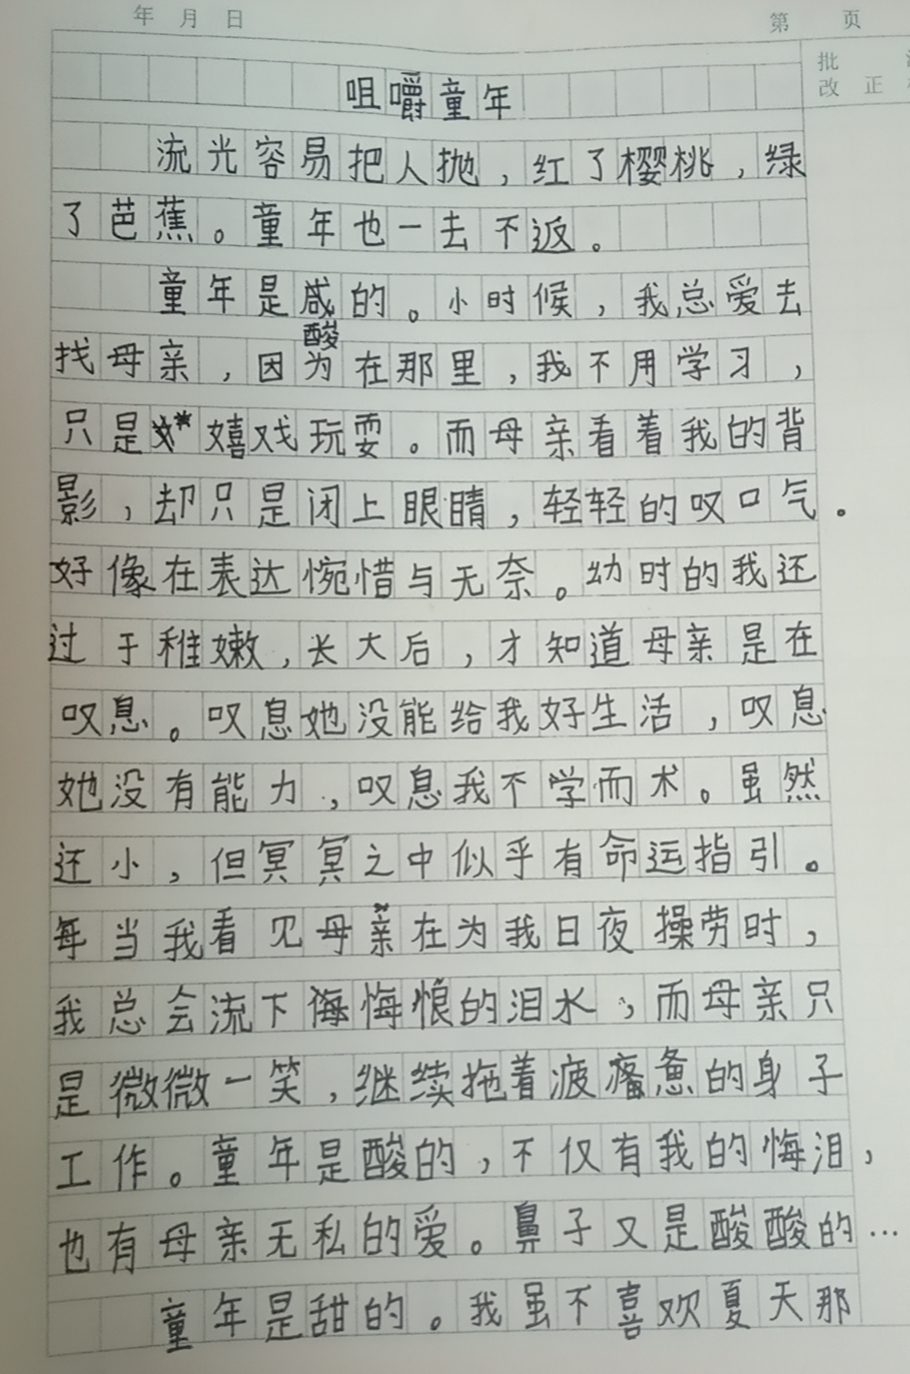 年 月 日
第 页
批
改 正
咀嚼童年
流光容易把人抛，红了樱桃，绿
了芭蕉。童年也一去不返。
童年是咸的。小时候，我总爱去
酸
找母亲，因为在那里，我不用学习，
只是嬉戏玩耍。而母亲看着我的背
影，却只是闭上眼睛，轻轻的叹口气。
好像在表达惋惜与无奈。幼时的我还
过于稚嫩，长大后，才知道母亲是在
叹息。叹息她没能给我好生活，叹息
她没有能力，叹息我不学而术。虽然
还小，但冥冥之中似乎有命运指引。
每当我看见母亲在为我日夜操劳时，
我总会流下悔悔恨的泪水，而母亲只
是微微一笑，继续拖着疲惫的身子
工作。童年是酸的，不仅有我的悔泪，
也有母亲无私的爱。鼻子又是酸酸的…
童年是甜的。我虽不喜欢夏天那